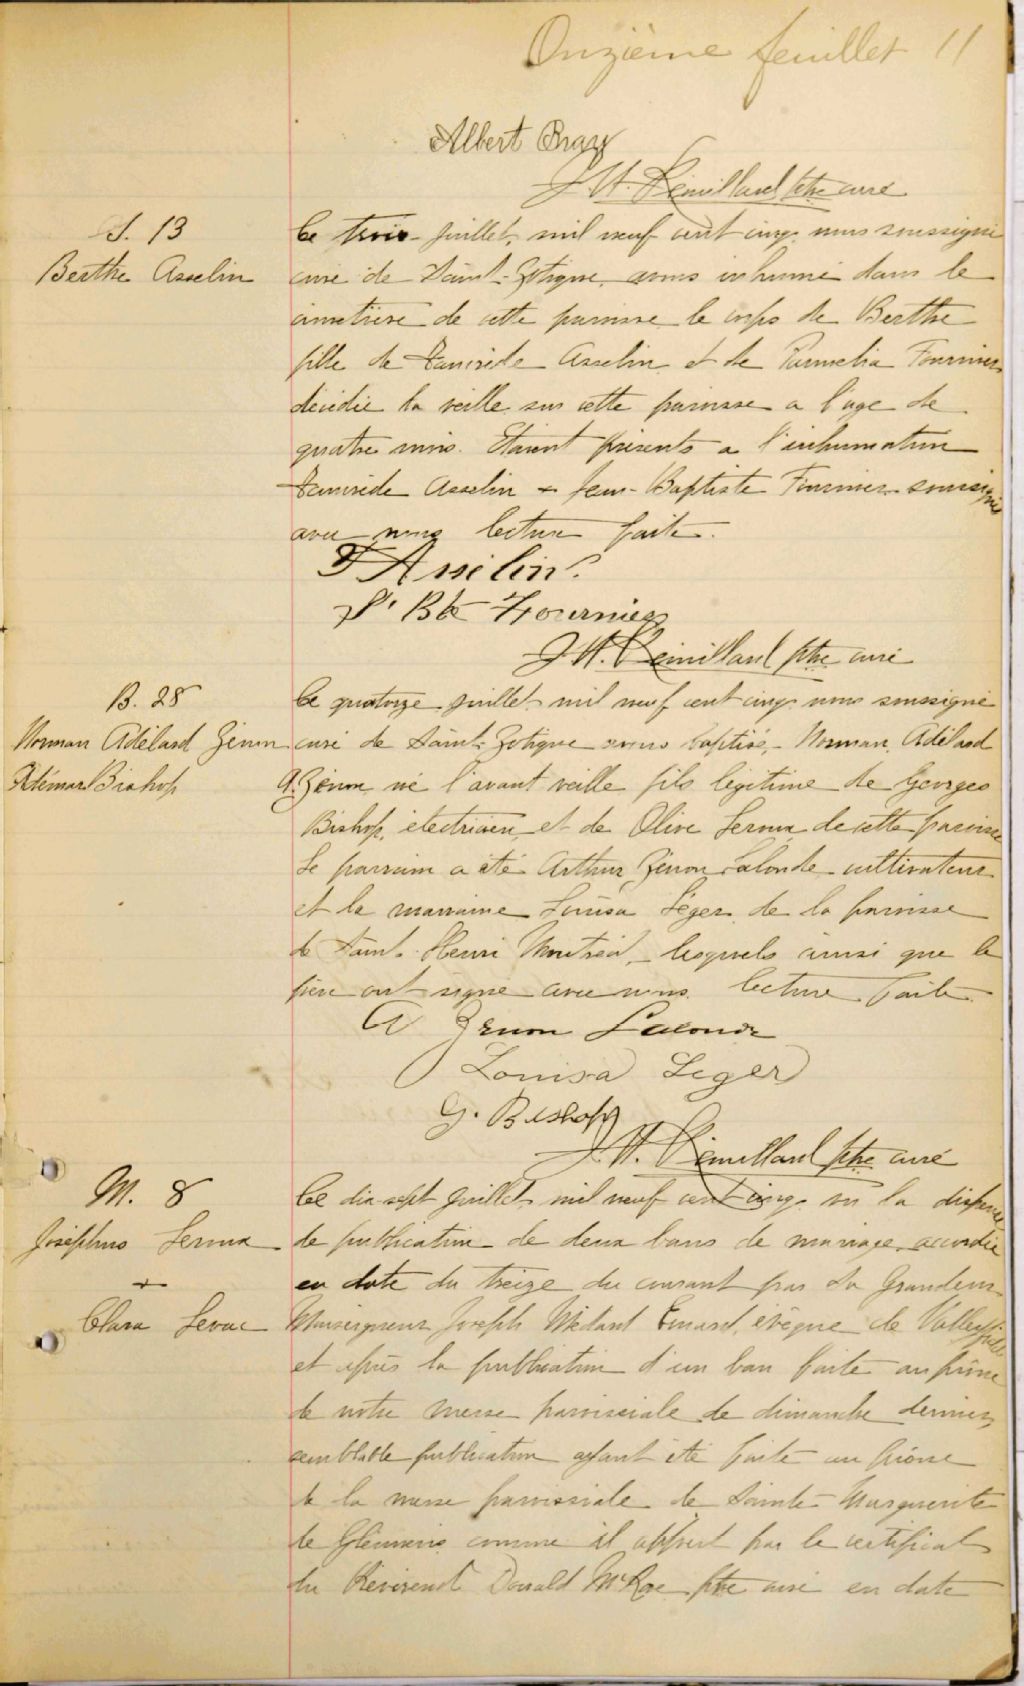 Onzième feuillet 11
Albert Bray
J. H. Rémillard ptre curé
S. 13
Berthe Asselin
Le trois juillet, mil neuf cent cinq. nous soussigné
curé de Saint-Zotique, avons inhumé dans le
cimetière de cette paroisse le corps de Berthe
fille de Tancrède Asselin et de Parmelia Fournier
décédée la veille sur cette paroisse a l'age de
quatre mois. Etaient présents a l'inhumation
Tancrède Asselin + Jean-Baptiste Fournier soussignés
avec nous lecture faite.
T Asselin.
J. Bte Fournier
J. H. Rémillard ptre curé
B. 28
Norman Adélard Zénon
Adémar Bishop
Le quatorze juillet mil neuf cent cinq. nous soussigné
curé de Saint-Zotique avons baptisé, Norman, Adélard
A. Zénon né l'avant veille fils légitime de Georges
Bishop, electricien, et de Olive Leroux de cette paroisse
Le parrain a été Arthur Zénon Lalonde cultivateur
et la marraine Louisa Léger de la paroisse
de Saint-Henri Montréal, lesquels ainsi que le
père ont signé avec nous. lecture faite.
A Zenon Lalonde
Louisa Leger
G. Bishop
J. H. Rémillard ptre curé
M. 8
Joséphus Leroux
+
Clara Levac
Le dix-sept juillet mil neuf cent cinq. vu la dispense
de publication de deux bans de mariage accordée
en date du treize du courant par Sa Grandeur
Monseigneur Joseph Médard Emard, évêque de Valleyfield
et après la publication d'un ban faite au prône
de notre messe paroissiale de dimanche dernier,
semblable publication ayant été faite au prône
de la messe paroissiale de Sainte-Marguerite
de Glennevis comme il appert par le certificat
du Révérend Donald McRae ptre curé en date